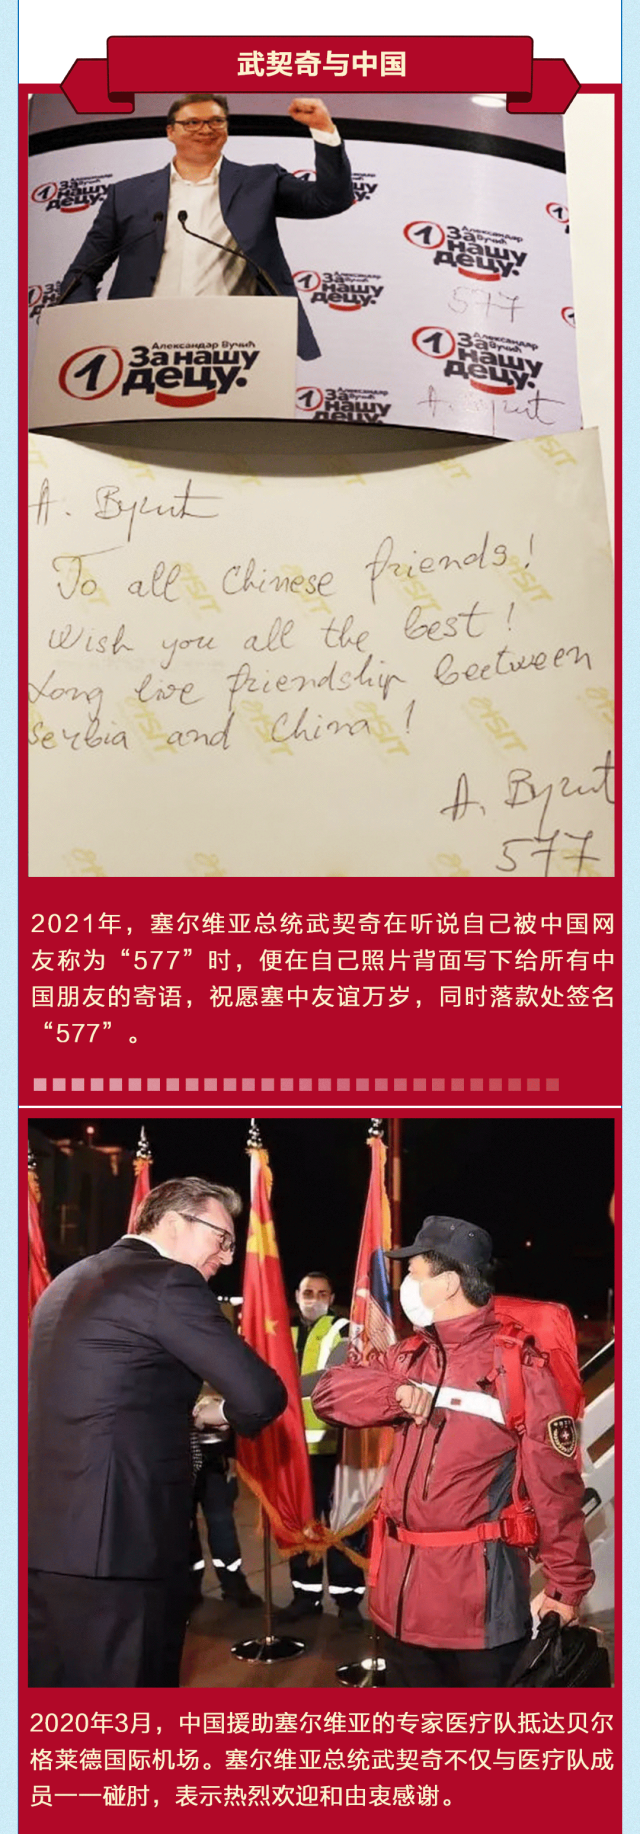 武契奇与中国
1
За нашу
децу.
Александар Вучић
1
За
нашу
децу.
577
Александар Вучић
1
За
нашу
децу.
А. Вучић
Александар Вучић
1
За нашу
децу.
1
За
нашу
децу.
1
За
нашу
децу.
А. Вучић
To all Chinese friends!
Wish you all the best!
Long live friendship beetween
Serbia and China!
А. Вучић
577
2021年，塞尔维亚总统武契奇在听说自己被中国网
友称为“577”时，便在自己照片背面写下给所有中
国朋友的寄语，祝愿塞中友谊万岁，同时落款处签名
“577”。
2020年3月，中国援助塞尔维亚的专家医疗队抵达贝尔
格莱德国际机场。塞尔维亚总统武契奇不仅与医疗队成
员一一碰肘，表示热烈欢迎和由衷感谢。